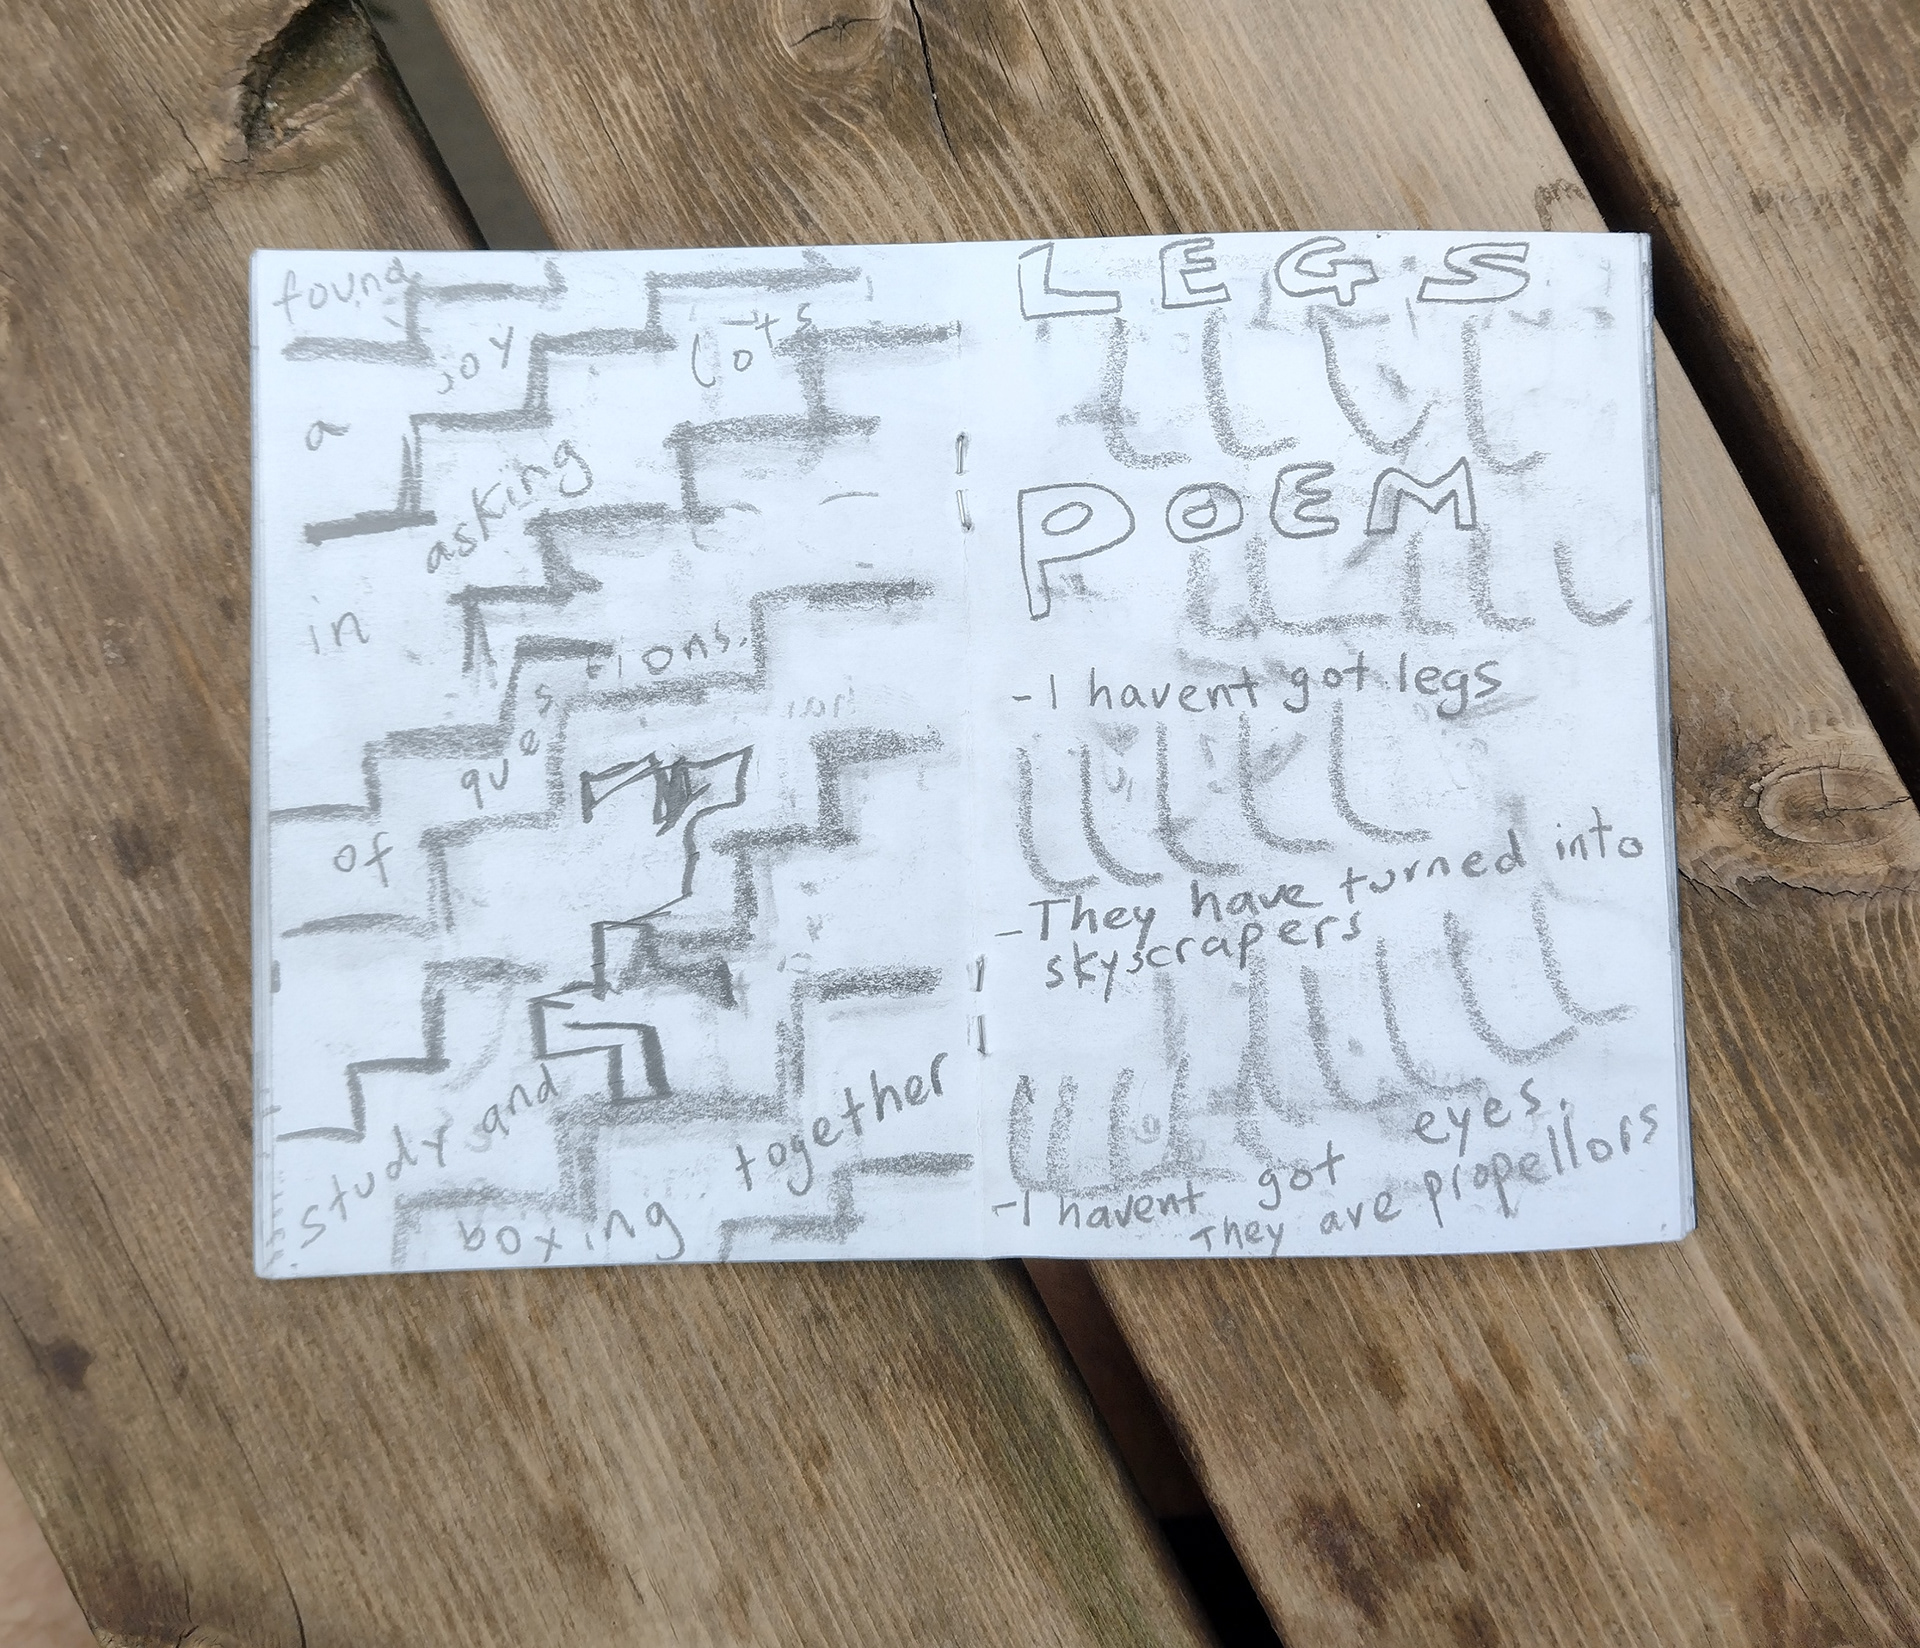 found
a joy
in asking lots
of questions.
study and
boxing together
LEGS
POEM
-I havent got legs
-They have turned into
skyscrapers
-I havent got eyes.
They are propellors